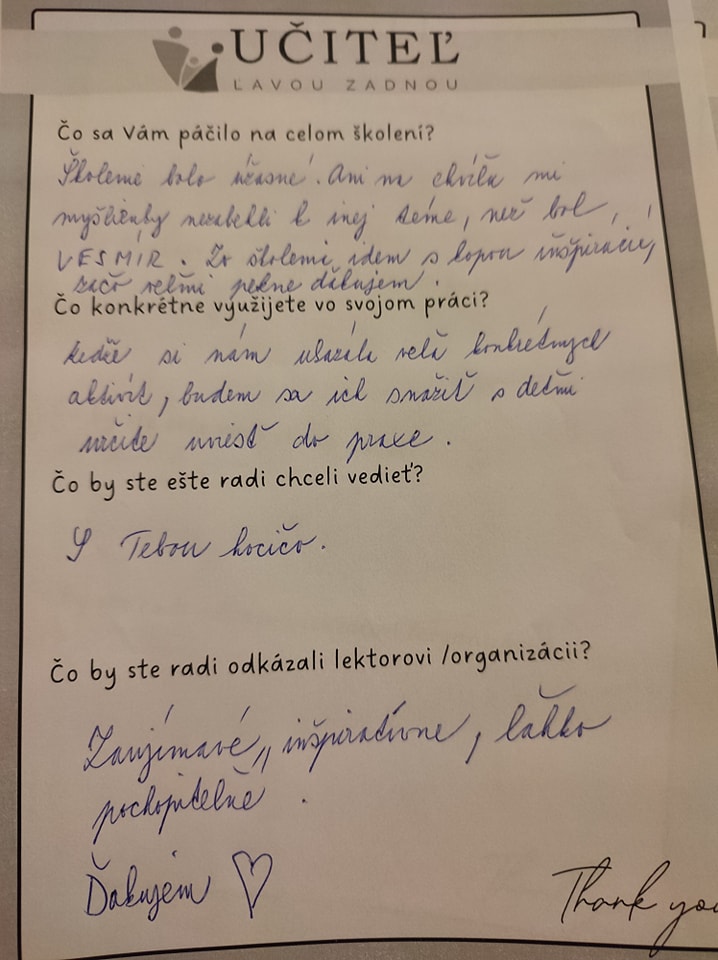 UČITEĽ
ĽAVOU ZADNOU
Čo sa Vám páčilo na celom školení?
Školenie bolo úžasné. Ani na chvíľu mi
myšlienky nezabehli k inej téme, než bol
VESMÍR. Zo školenia idem s kopou inšpirácií,
začo veľmi pekne ďakujem.
Čo konkrétne využijete vo svojom práci?
Keďže si nám ukázala veľa konkrétnych
aktivít, budem sa ich snažiť s deťmi
určite uviesť do praxe.
Čo by ste ešte radi chceli vedieť?
S Tebou hocičo.
Čo by ste radi odkázali lektorovi /organizácii?
Zaujímavé, inšpiratívne, ľahko
pochopiteľné.
Ďakujem
Thank you